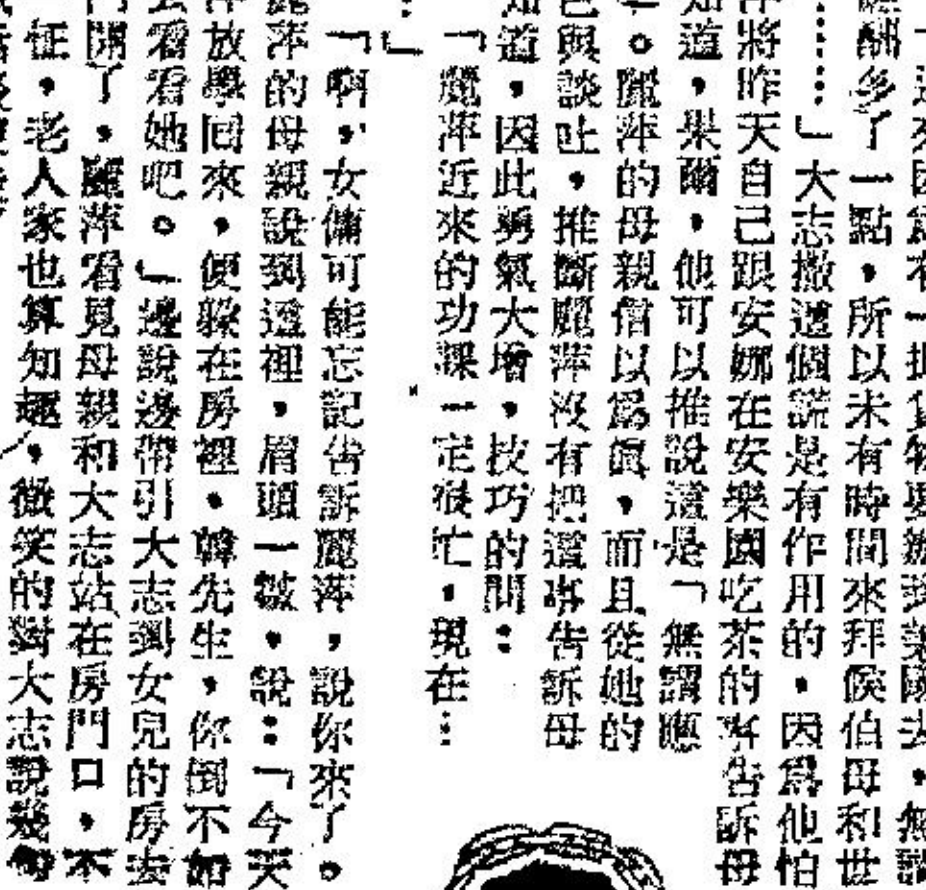 近來因爲有一批貨物要
應酬多了一點，所以未有時間來拜候伯母和世
……」大志撒這個謊是有作用的，因爲他怕
將昨天自己跟安娜在安樂園吃茶的事告訴母
知道，果爾，他可以推說這是「無謂應
。麗萍的母親信以爲眞，而且從她的
色與談吐，推斷麗萍沒有把這事告訴母
知道，因此勇氣大增，技巧的問：
「麗萍近來的功課一定很忙，現在…
…」
「啊，女傭可能忘記告訴麗萍，說你來了。
麗萍的母親說到這裡，眉頭一皺，說：「今天
放學回來，便躱在房裡，韓先生，你倒不如
去看看她吧。」邊說邊帶引大志到女兒的房去
門開了，麗萍看見母親和大志站在房門口，不
怔，老人家也算知趣，微笑的對大志說幾句